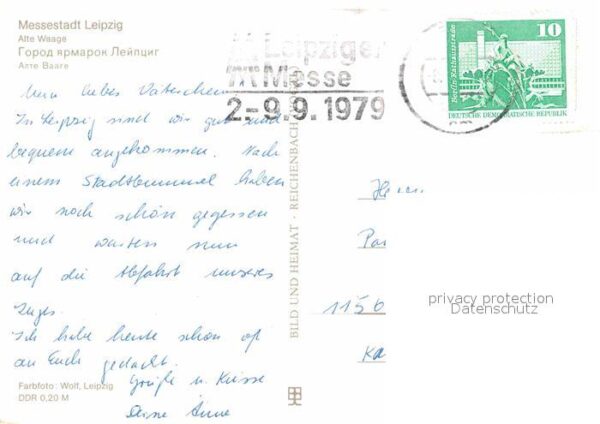 Messestadt Leipzig
Alte Waage
Город ярмарок Лейпциг
Алте Вааге
Leipziger
Messe
2.-9.9.1979
10
Berlin, Rathausstraße
DEUTSCHE DEMOKRATISCHE REPUBLIK
Mein liebes Vaterchen
In Leipzig sind wir gut und
bequem angekommen. Nach
einem Stadtbummel haben
wir noch schön gegessen
und warten nun
auf die Abfahrt unseres
Zuges.
Ich habe heute schon oft
an Euch gedacht.
Grüße u. Küsse
Deine Anne
BILD UND HEIMAT · REICHENBACH
Herrn
1150
privacy protection
Datenschutz
Farbfoto: Wolf, Leipzig
DDR 0,20 M